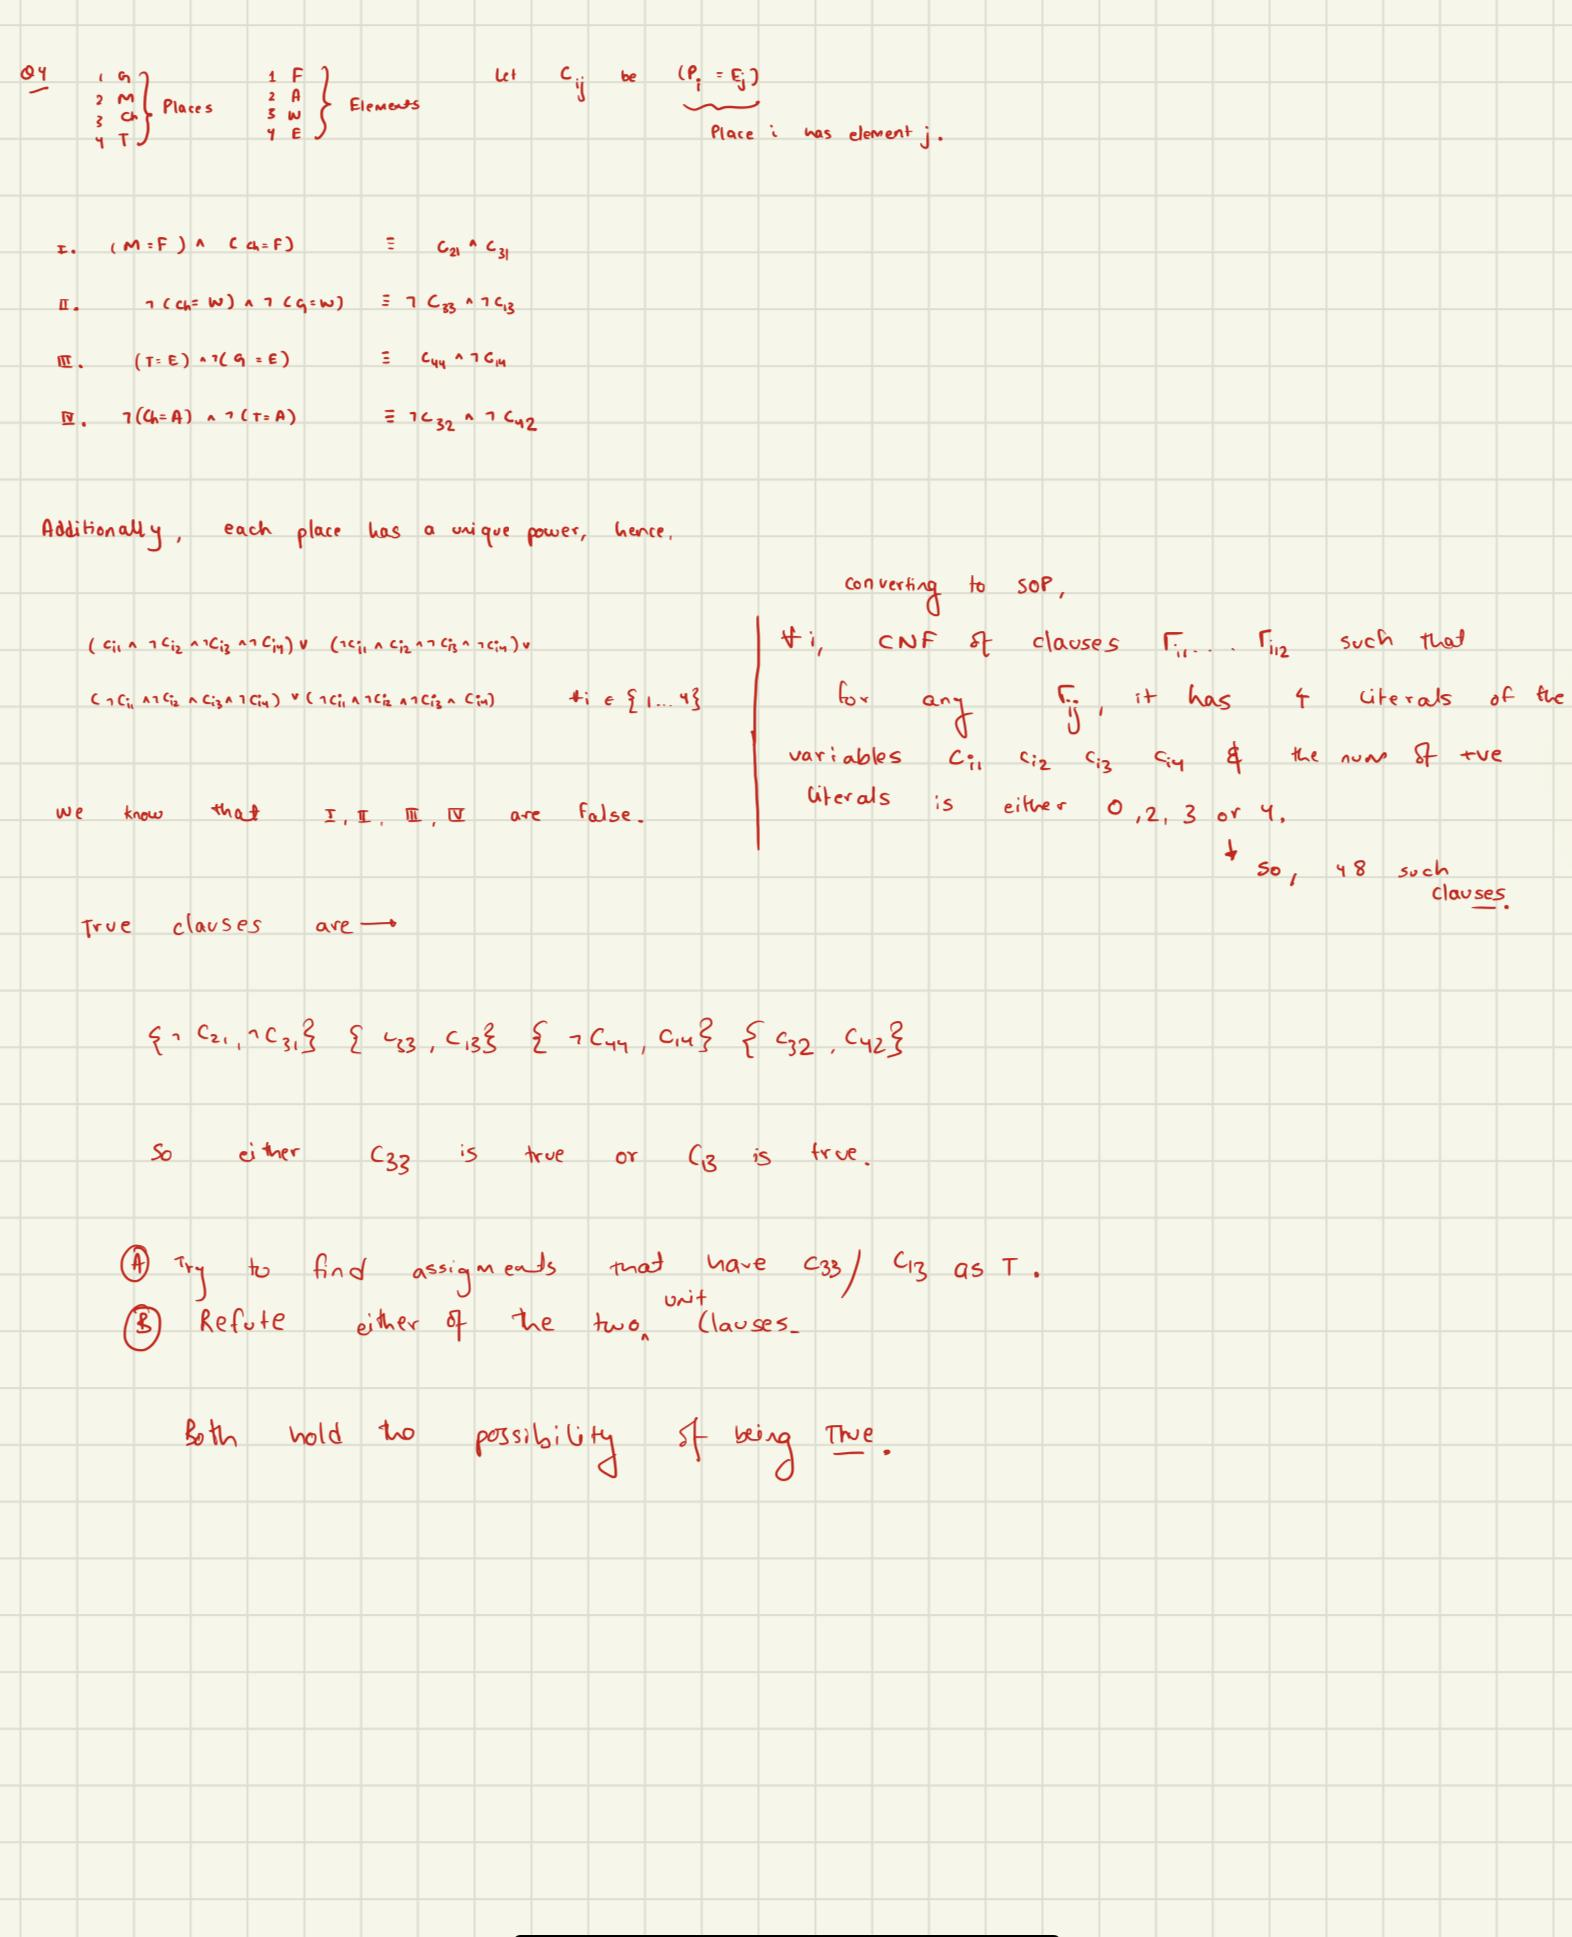 Q4
1 G
2 M
3 Ch
4 T
} Places
1 F
2 A
3 W
4 E
} Elements
Let C_ij be (P_i = E_j)
Place i has element j.
I. (M=F) ∧ (Ch=F) ≡ C_21 ∧ C_31
II. ¬(Ch=W) ∧ ¬(G=W) ≡ ¬C_33 ∧ ¬C_13
III. (T=E) ∧ ¬(G=E) ≡ C_44 ∧ ¬C_14
IV. ¬(Ch=A) ∧ ¬(T=A) ≡ ¬C_32 ∧ ¬C_42
Additionally, each place has a unique power, hence,
(C_i1 ∧ ¬C_i2 ∧ ¬C_i3 ∧ ¬C_i4) ∨ (¬C_i1 ∧ C_i2 ∧ ¬C_i3 ∧ ¬C_i4) ∨
(¬C_i1 ∧ ¬C_i2 ∧ C_i3 ∧ ¬C_i4) ∨ (¬C_i1 ∧ ¬C_i2 ∧ ¬C_i3 ∧ C_i4) ∀i ∈ {1...4}
we know that I, II, III, IV are false.
converting to SOP,
∀i, CNF of clauses Γ_i1.... Γ_i12 such that
for any Γ_ij, it has 4 literals of the
variables C_i1 C_i2 C_i3 C_i4 & the num of +ve
literals is either 0, 2, 3 or 4.
↓
so, 48 such
clauses.
True clauses are →
{¬C_21, ¬C_31} {C_33, C_13} {¬C_44, C_14} {C_32, C_42}
So either C_33 is true or C_13 is true.
(A) Try to find assigments that have C_33 / C_13 as T.
(B) Refute either of the two ^ unit clauses.
Both hold the possibility of being True.